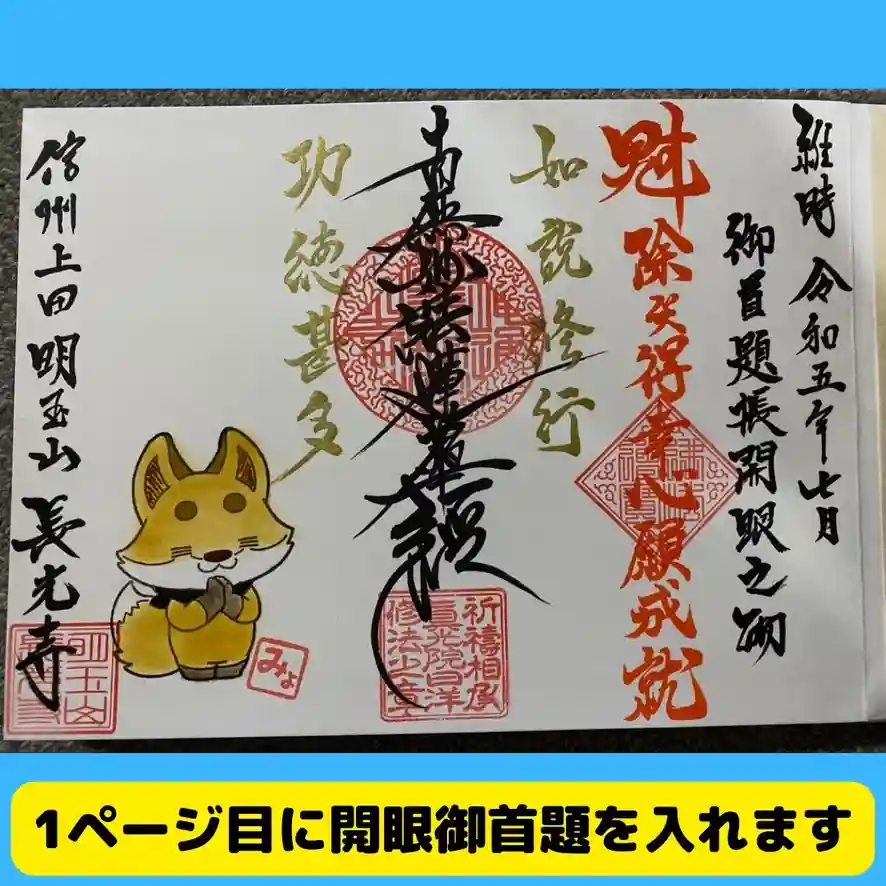 維時 令和五年七月
御首題帳開眼之砌
除災得幸心願成就
如説修行
南無妙法蓮華経
功徳甚多
信州上田 明玉山 長光寺
祈禱相承
修法之章
みょ
明玉山
1ページ目に開眼御首題を入れます